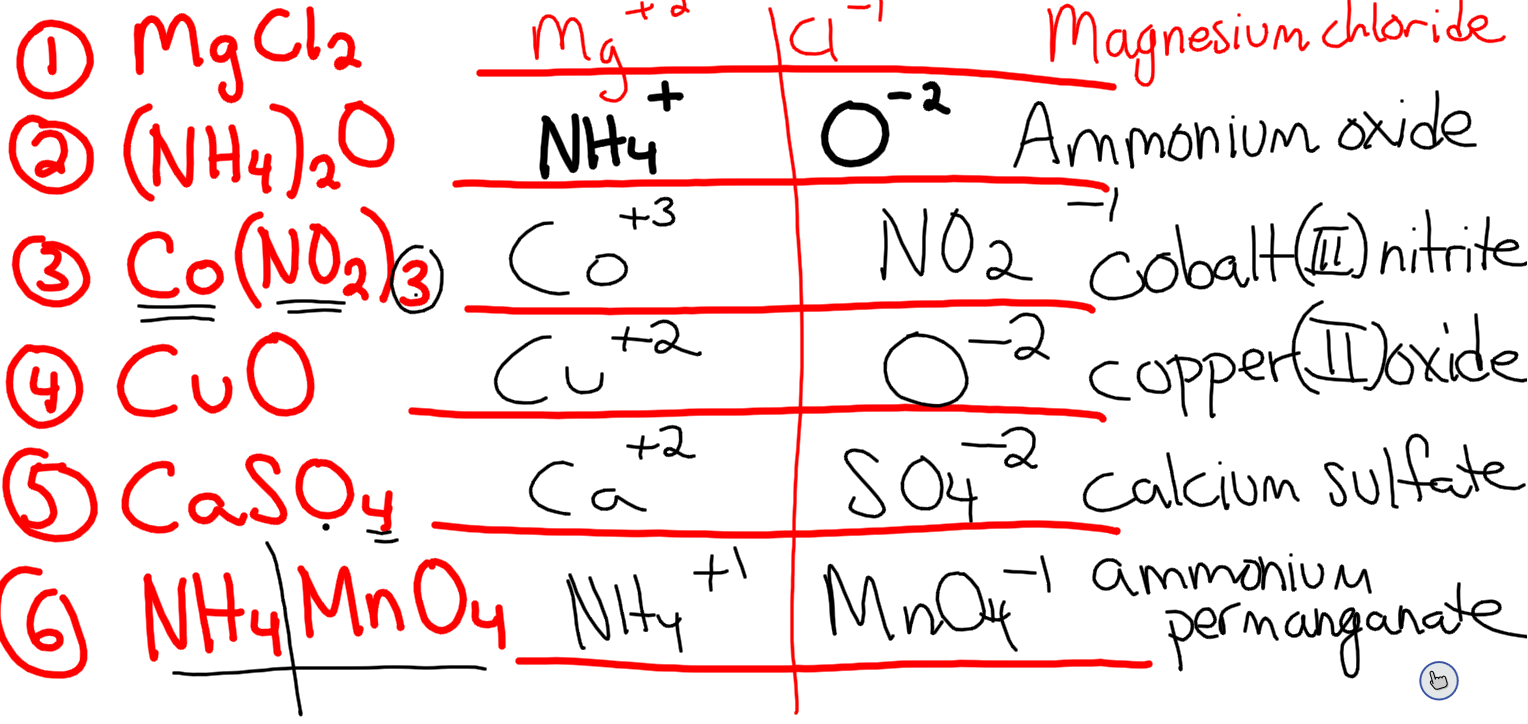 ① MgCl₂ Mg⁺² Cl⁻¹ Magnesium chloride
② (NH₄)₂O NH₄⁺ O⁻² Ammonium oxide
③ Co(NO₂)₃ Co⁺³ NO₂⁻¹ cobalt(II) nitrite
④ CuO Cu⁺² O⁻² copper(II) oxide
⑤ CaSO₄ Ca⁺² SO₄⁻² calcium sulfate
⑥ NH₄ MnO₄ NH₄⁺¹ MnO₄⁻¹ ammonium
permanganate